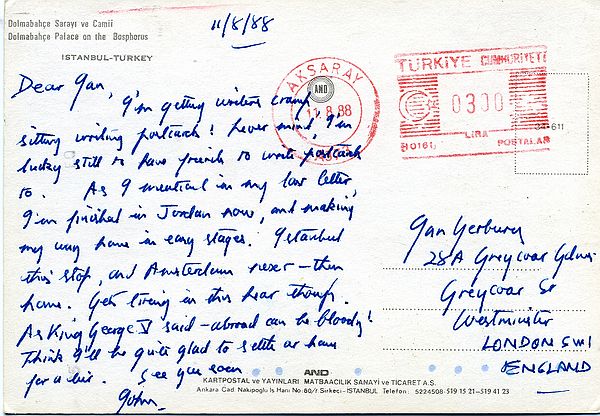 Dolmabahçe Sarayı ve Camii
Dolmabahçe Palace on the Bosphorus
ISTANBUL-TURKEY
11/8/88
Dear Ian,
I'm getting writers cramp
sitting writing postcards! Never mind, I'm
lucky still to have friends to write postcards
to. As I mentioned in my last letter,
I'm finished in Jordan now, and making
my way home in easy stages. Istanbul
this stop, and Amsterdam next – then
home. Gets tiring in this heat though.
As King George V said – abroad can be bloody!
Think I'll be quite glad to settle at home
for a bit. See you soon
John.
AKSARAY
AND
11.8.88
TÜRKİYE CUMHURİYETİ
0300
LİRA
POSTALAR
34-611
Ian Yerbury
28A Greycoat Gdns.
Greycoat St
Westminster
LONDON SW1
ENGLAND
AND
KARTPOSTAL ve YAYINLARI MATBAACILIK SANAYİ ve TİCARET A.Ş.
Ankara Cad. Nakıpoğlu İş Hanı No: 60/7 Sirkeci - İSTANBUL Telefon: 5224508-519 15 21-519 41 23